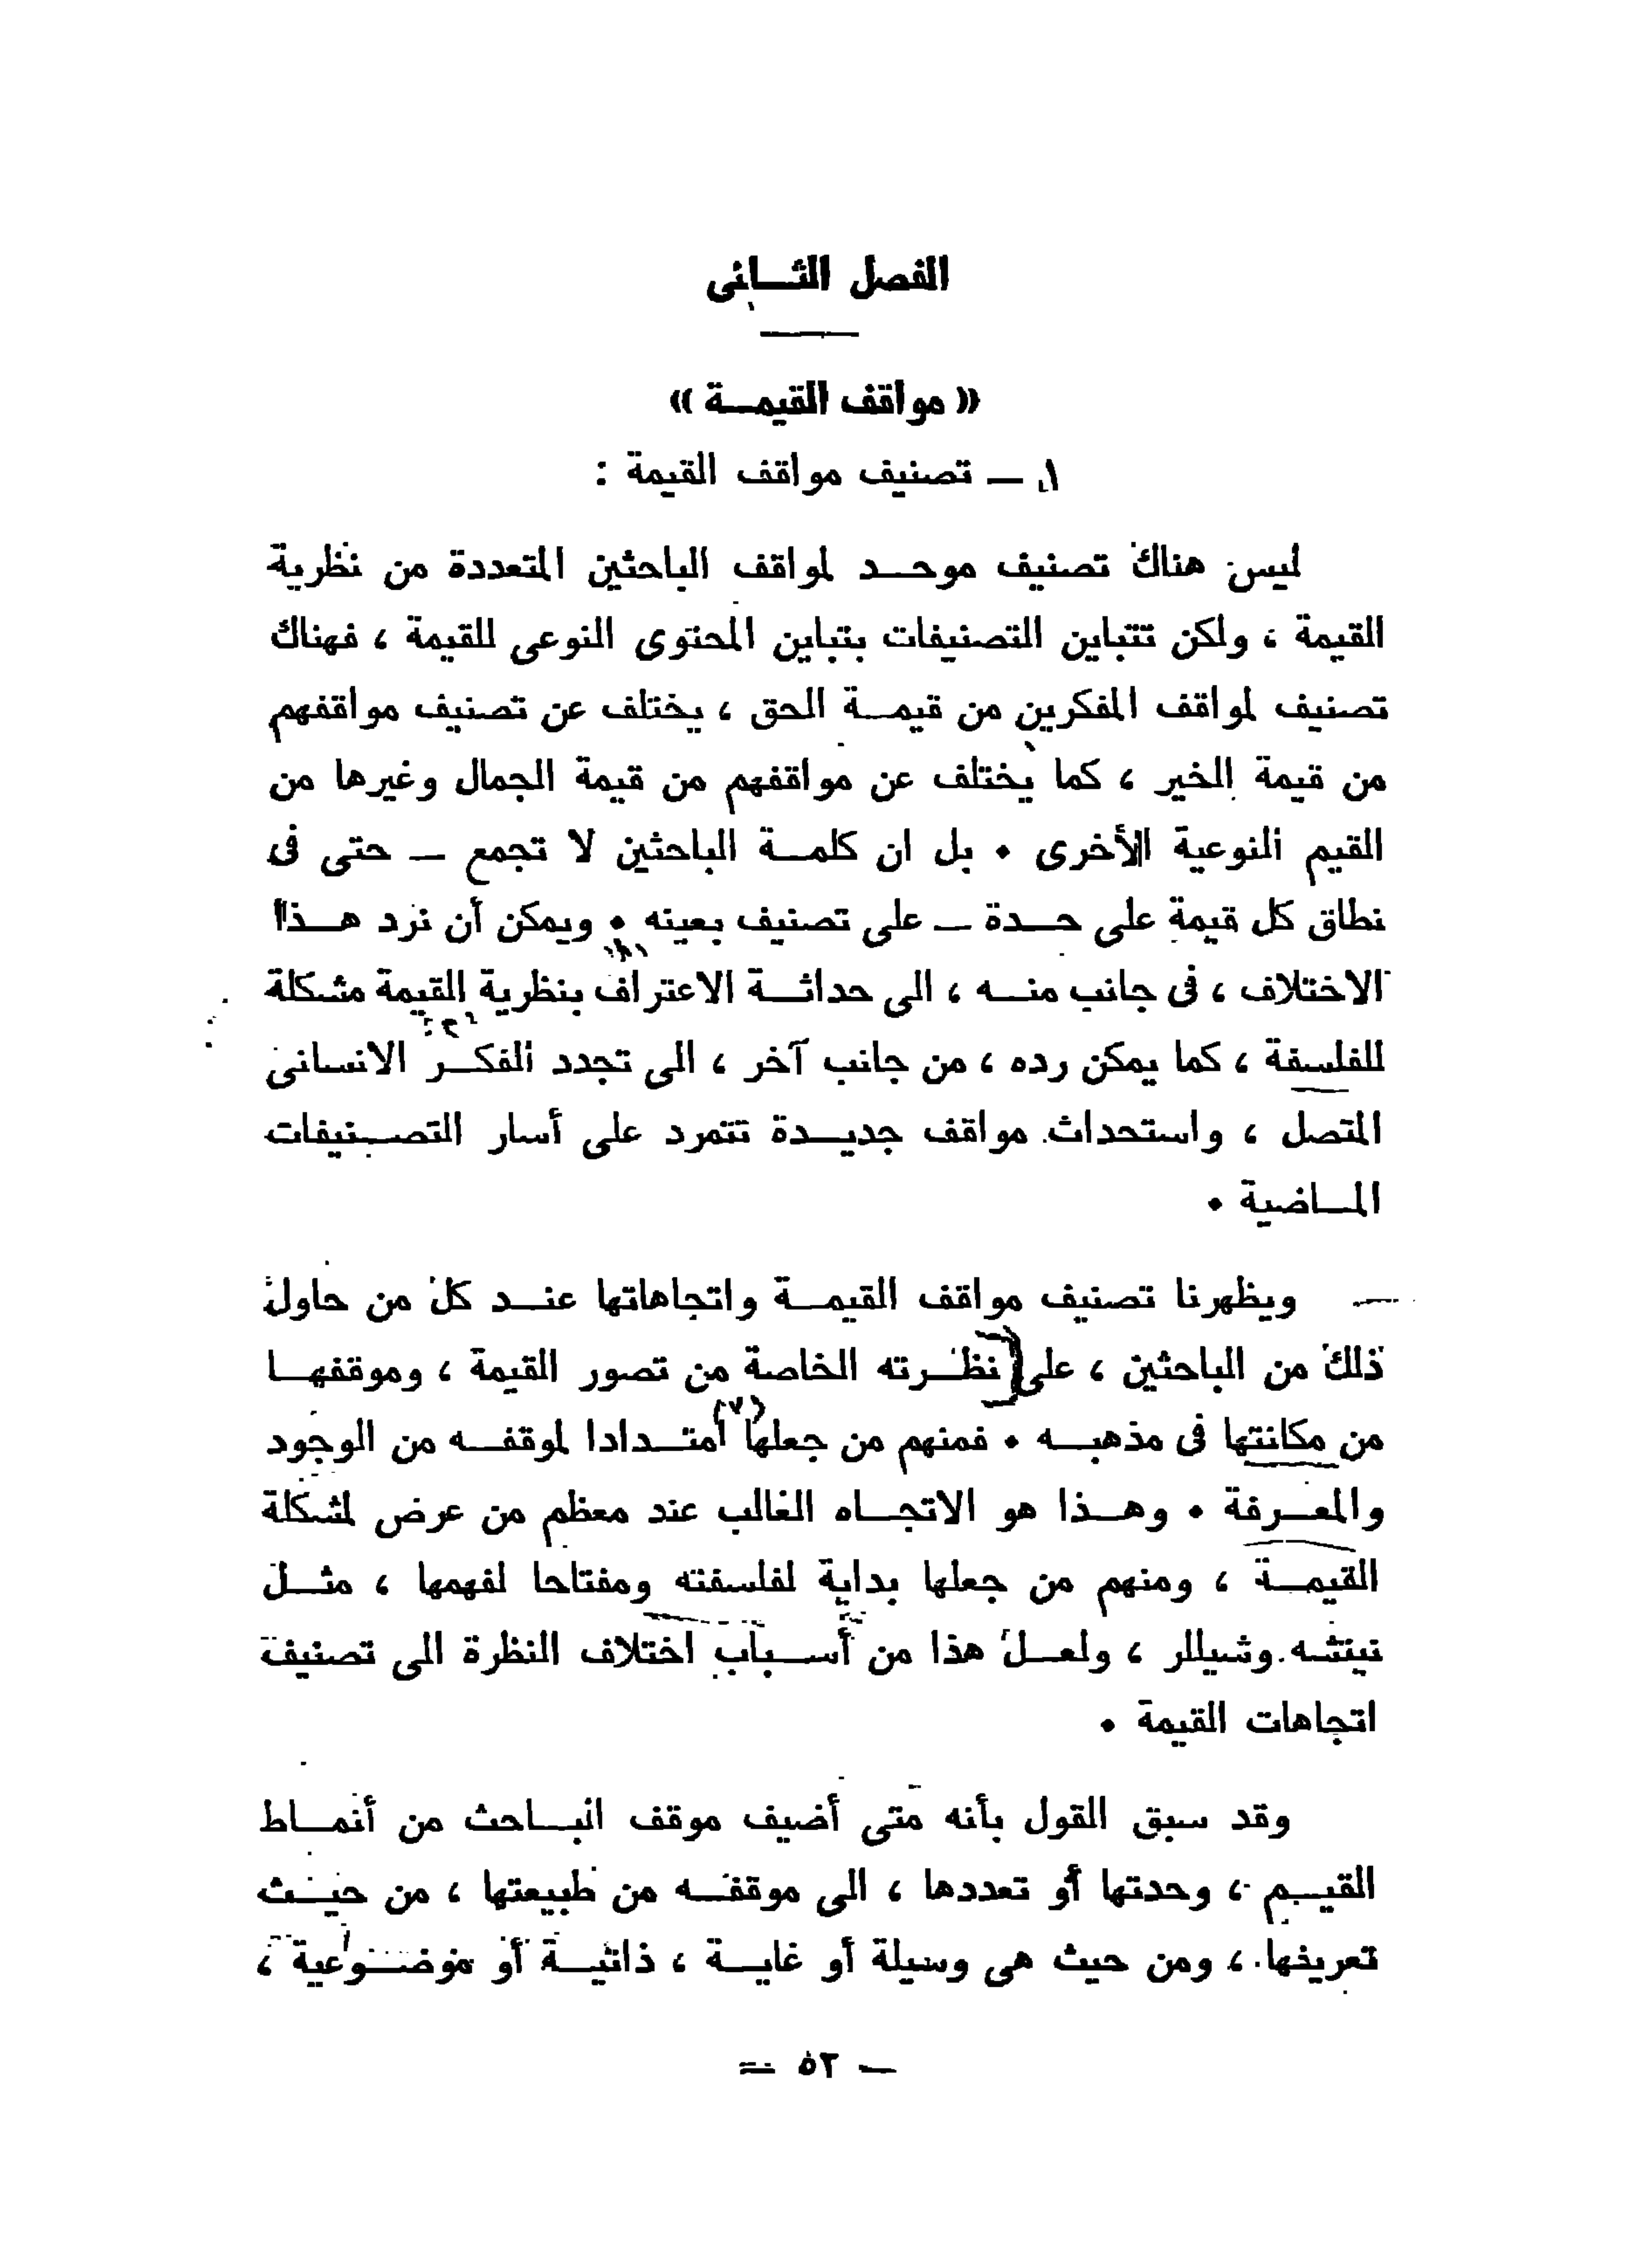 الفصل الثانى
« مواقف القيمة »
١ — تصنيف مواقف القيمة :
ليس هناك تصنيف موحد لمواقف الباحثين المتعددة من نظرية
القيمة ، ولكن تتباين التصنيفات بتباين المحتوى النوعى للقيمة ، فهناك
تصنيف لمواقف المفكرين من قيمة الحق ، يختلف عن تصنيف مواقفهم
من قيمة الخير ، كما يختلف عن مواقفهم من قيمة الجمال وغيرها من
القيم النوعية الأخرى • بل ان كلمة الباحثين لا تجمع — حتى فى
نطاق كل قيمة على حدة — على تصنيف بعينه • ويمكن أن نرد هذا
الاختلاف ، فى جانب منه ، الى حداثة الاعتراف بنظرية القيمة مشكلة
للفلسفة ، كما يمكن رده ، من جانب آخر ، الى تجدد الفكر الانسانى
المتصل ، واستحداث مواقف جديدة تتمرد على أسار التصنيفات
الماضية •
ويظهرنا تصنيف مواقف القيمة واتجاهاتها عند كل من حاول
ذلك من الباحثين ، على نظرته الخاصة من تصور القيمة ، وموقفها
من مكانتها فى مذهبه • فمنهم من جعلها (٧) امتدادا لموقفه من الوجود
والمعرفة • وهذا هو الاتجاه الغالب عند معظم من عرض لمشكلة
القيمة ، ومنهم من جعلها بداية لفلسفته ومفتاحا لفهمها ، مثل
نيتشه وشيللر ، ولعل هذا من أسباب اختلاف النظرة الى تصنيف
اتجاهات القيمة •
وقد سبق القول بأنه متى أضيف موقف الباحث من أنماط
القيم ، وحدتها أو تعددها ، الى موقفه من طبيعتها ، من حيث
تعريفها ، ومن حيث هى وسيلة أو غاية ، ذاتية أو موضوعية ،
— ٥٢ —